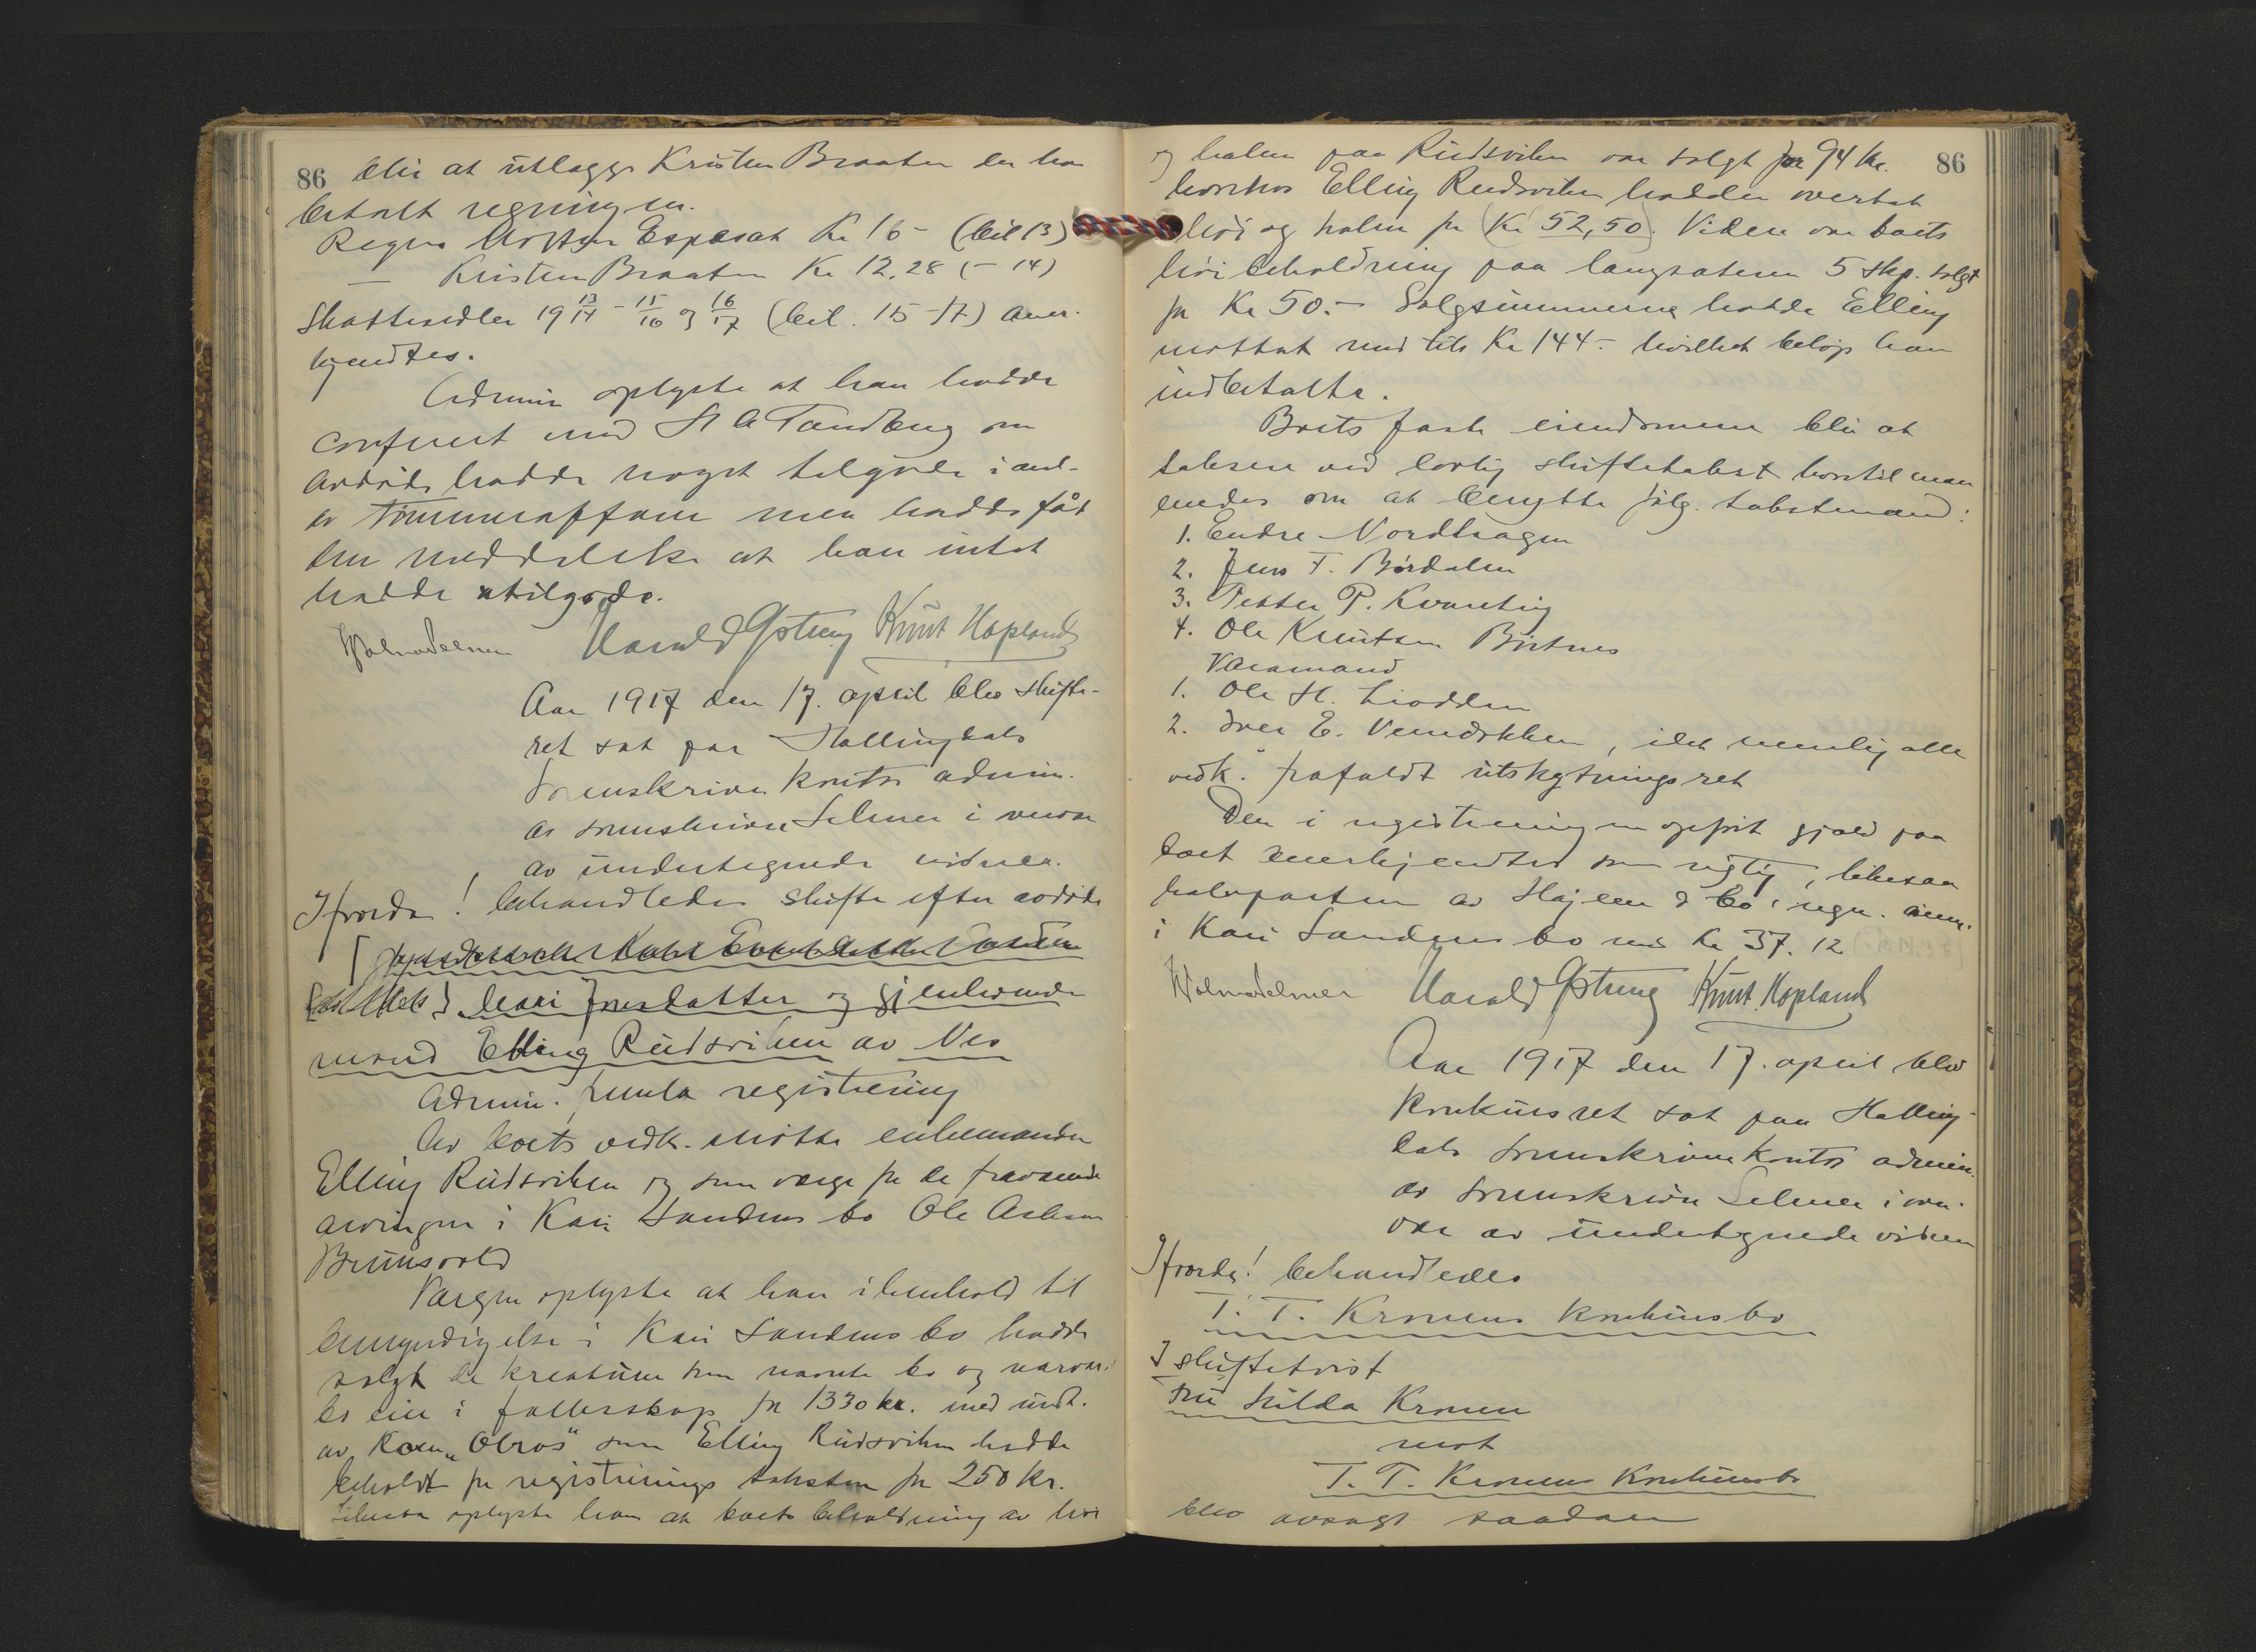 86 blir at utlægge Kristen Braaten der har
betalt regningen.
Regn. Espesat Kr 16 - (bil 13)
— Kristen Braaten Kr 12,28 (- 14)
Skattesedler 19 13/14 - 15/16 og 16/17 (bil. 15-17) aner-
kjendtes.
Admin oplyste at han hadde
conferert med Tandberg om
avdøde hadde noget tilgode i anl-
av men hadde fåt
den meddelelse at han intet
hadde tilgode.
Harald Knut Hopland
Aar 1917 den 17. april blev skifte-
ret sat paa Hallingdals
sorenskriver kontor admin.
av sorenskriver Selmer i overvær
av undertegnede vidner.
Hvorda! behandledes skifte efter avdøde
Kari Jensdatter og gjenlevende
mand Elling Rudsviken av Nes
Admin. fremla registrering
Av boets vedk. møtte enkemanden
Elling Rudsviken og som verge for de fraværende
arvinger i Kari Sandens bo Ole Aslesen
Brunsvold
Vergen oplyste at han i henhold til
bemyndigelse i Kari Sandens bo hadde
solgt de kreaturer som nævnte bo og nærvær.
bo eier i fællesskap for 1330 kr. med undt.
av Koen "Olros" som Elling Rudsviken hadde
beholdt for registrerings taksten for 250 kr.
Likesaa oplyste han at boets beholdning av høi
86
og halm paa Rudsviken var solgt for 94 kr.
hvorhos Elling Rudsviken hadde overtat
høi og halm for (Kr 52,50). Videre var boets
høibeholdning paa langsæteren 5 skp. solgt
for Kr 50.- Salgsummerne hadde Elling
mottat med tils Kr 144.- hvilket beløp han
indbetalte.
Boets faste eiendomme blir at
taksere ved lovlig skiftetakst hvortil man
enedes om at benytte følg. takstmænd:
1. Endre Nordhagen
2. Jens T. Børdalen
3. Petter P. Kvarteig
4. Ole Knutsen Birtnes
Varamænd
1. Ole H. Liodden
2. Iver E. , idet nemlig alle
vedk. frafaldt utskytningsret
Den i registreringen opført gjæld paa
boet anerkjendtes som rigtig, likesaa
halvparten av & Co's regn. anm.
i Kari Sandens bo med Kr 37.12
Harald Knut Hopland
Aar 1917 den 17. april blev
konkursret sat paa Halling-
dals sorenskriverkontor admin.
av sorenskriver Selmer i over-
vær av undertegnede vidner
Hvorda! behandledes
T. T. Kromens konkursbo
I skiftetvist
fru Hilda Kromen
mot
T. T. Kromens Konkursbo
blev avsagt saadan